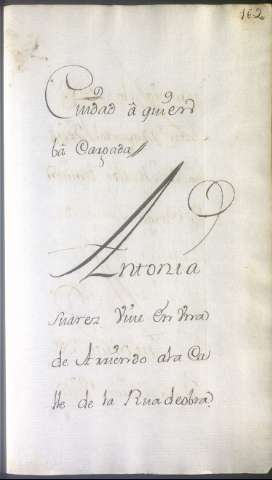 162
Ciudad â quien
bâ Cargada
Antonia
Suarez Vive En Una
de Arriendo ala Ca
lle de la Rua de obra.